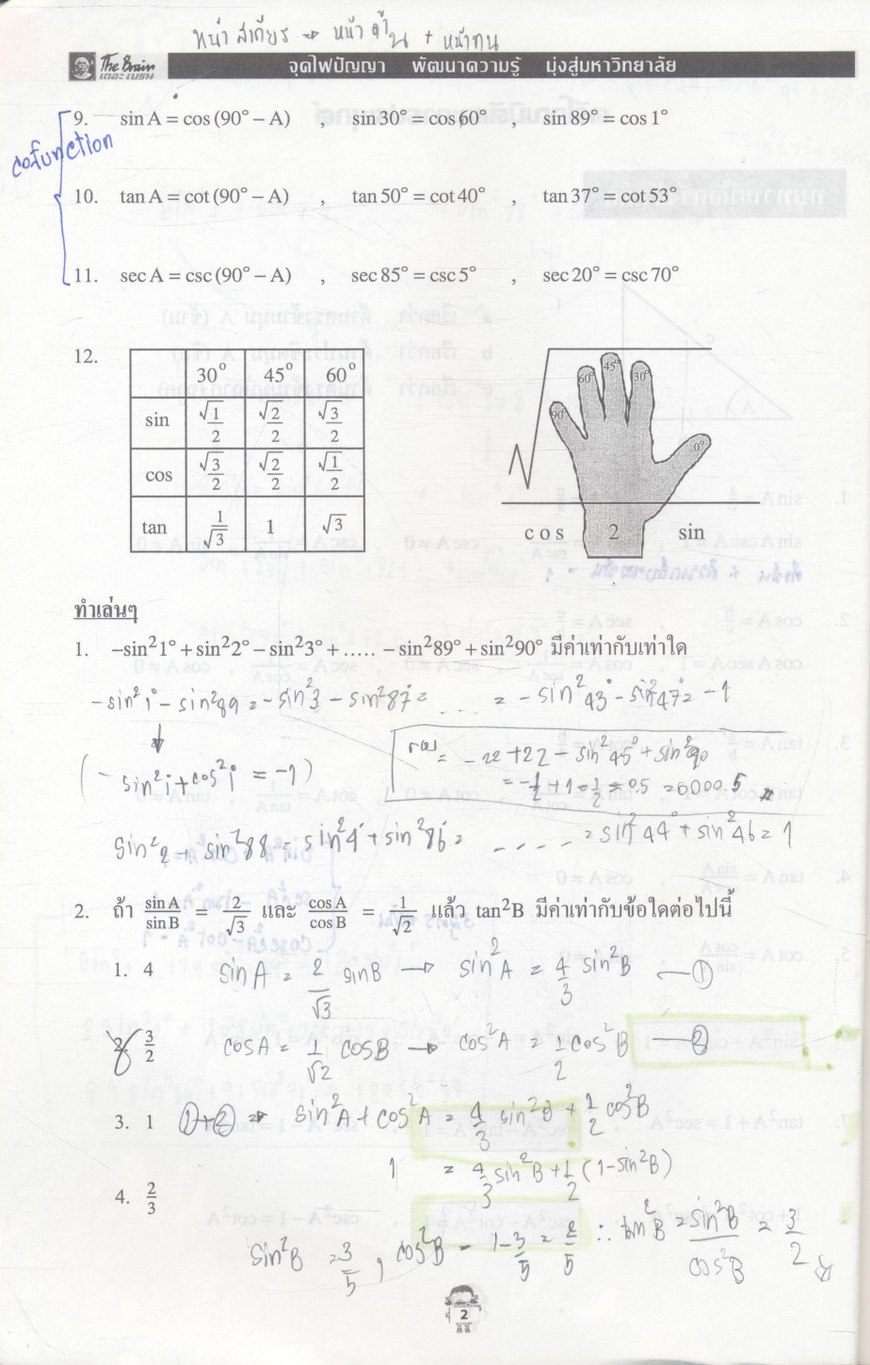 หน้าสเกียร → หน้าจั่น + หน้าทน
The Brain
เดอะเบรน
จุดไฟปัญญา พัฒนาความรู้ มุ่งสู่มหาวิทยาลัย
cofunction
9. sin A = cos (90° – A) , sin 30° = cos 60° , sin 89° = cos 1°
10. tan A = cot (90° – A) , tan 50° = cot 40° , tan 37° = cot 53°
11. sec A = csc (90° – A) , sec 85° = csc 5° , sec 20° = csc 70°
12.
30° 45° 60°
sin √1/2 √2/2 √3/2
cos √3/2 √2/2 √1/2
tan 1/√3 1 √3
90° 60° 45° 30° 0°
cos 2 sin
ทำเล่นๆ
1. –sin²1° + sin²2° – sin²3° + ..... – sin²89° + sin²90° มีค่าเท่ากับเท่าใด
-sin²1° - sin²89 = -sin²3 - sin²87° = .... = -sin²43° - sin²47 = -1
(-sin²1 + cos²1 = -1)
= -22 + 22 - sin²45° + sin²90
= -1/2 + 1 = 1/2 = 0.5 = 0000.5
sin²2 + sin²88 = sin²4° + sin²86 = ..... = sin²44° + sin²46 = 1
2. ถ้า sinA/sinB = 2/√3 และ cosA/cosB = 1/√2 แล้ว tan²B มีค่าเท่ากับข้อใดต่อไปนี้
1. 4
sin A = 2/√3 sin B → sin²A = 4/3 sin²B —①
2. 3/2
cos A = 1/√2 cos B → cos²A = 1/2 cos²B —②
3. 1
①+② ⇒ sin²A + cos²A = 4/3 sin²B + 1/2 cos²B
1 = 4/3 sin²B + 1/2 (1-sin²B)
4. 2/3
sin²B = 3/5 , cos²B = 1 - 3/5 = 2/5 ∴ tan²B = sin²B/cos²B = 3/2
2